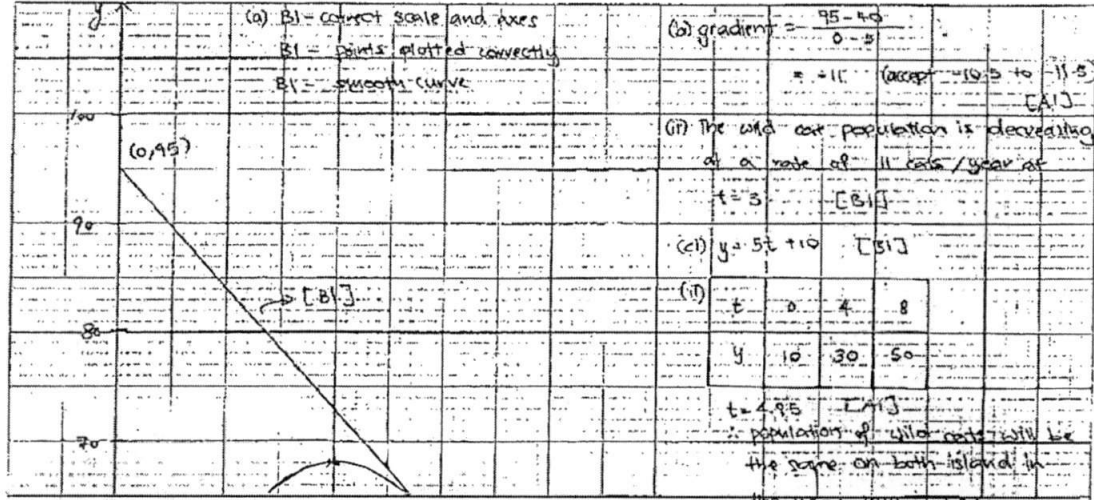 y
(a) B1 - correct scale and axes
B1 - points plotted correctly
B1 - smooth curve
100
(0,95)
90
[B1]
80
70
(b) gradient = 95-40
0-5
= -11 (accept -10.5 to -11.5)
[A1]
(ii) The wild cat population is decreasing
at a rate of 11 cats/year at
t=3 [B1]
(ci) y = 5t + 10 [B1]
(ii)
t 0 4 8
y 10 30 50
t = 4.95 [A1]
∴ population of wild cats will be
the same on both island in